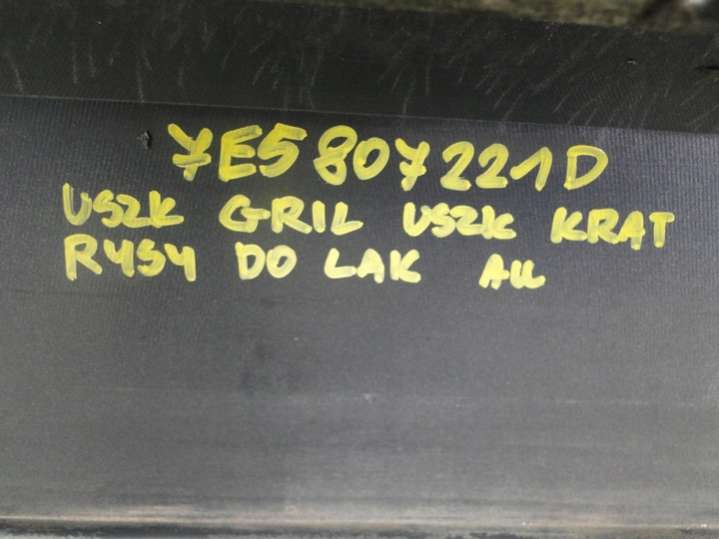 7E5807221D
USZK GRIL USZK KRAT
RYSY DO LAK ALL